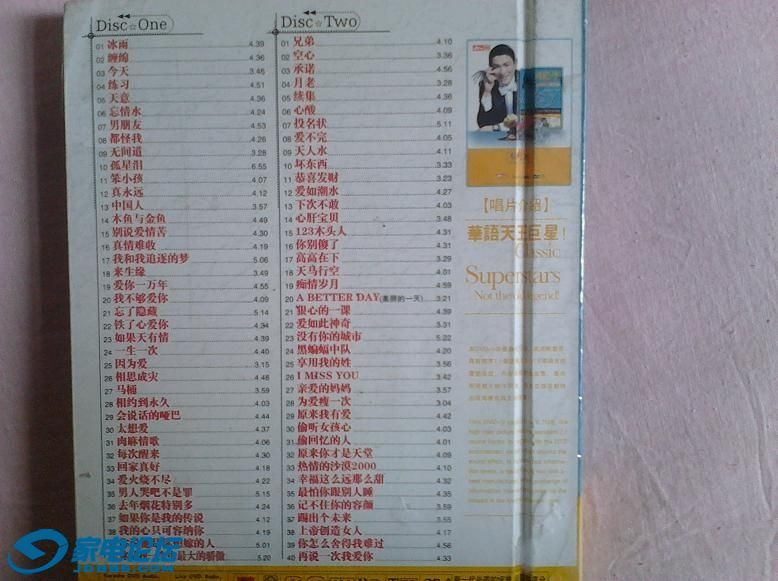 Disc☆One
01 冰雨 4.39
02 缠绵 4.36
03 今天 3.46
04 练习 4.51
05 天意 4.36
06 忘情水 4.24
07 男朋友 4.53
08 都怪我 4.26
09 无间道 3.28
10 孤星泪 6.55
11 笨小孩 4.07
12 真永远 4.12
13 中国人 3.57
14 木鱼与金鱼 4.49
15 别说爱情苦 4.30
16 真情难收 4.19
17 我和我追逐的梦 5.06
18 来生缘 3.49
19 爱你一万年 4.55
20 我不够爱你 4.09
21 忘了隐藏 5.14
22 铁了心爱你 4.34
23 如果天有情 4.39
24 一生一次 4.40
25 因为爱 3.15
26 相思成灾 4.48
27 马桶 3.59
28 相约到永久 4.03
29 会说话的哑巴 4.44
30 太想爱 4.37
31 肉麻情歌 4.06
32 每次醒来 4.30
33 回家真好 4.18
34 爱火烧不尽 4.22
35 男人哭吧不是罪 5.15
36 去年烟花特别多 4.24
37 如果你是我的传说 4.12
38 我的心只可容纳你 4.19
嫁的人 5.01
最大的骄傲 5.20
Disc☆Two
01 兄弟 4.10
02 空心 3.36
03 承诺 4.56
04 月老 3.28
05 续集 4.36
06 心酸 4.09
07 投名状 5.11
08 爱不完 4.05
09 天人水 4.11
10 坏东西 3.33
11 恭喜发财 3.23
12 爱如潮水 4.27
13 下次不敢 4.03
14 心肝宝贝 3.48
15 123木头人 4.31
16 你别傻了 4.31
17 高高在下 3.29
18 天马行空 4.01
19 痴情岁月 4.59
20 A BETTER DAY(美丽的一天) 3.21
21 狠心的一课 4.39
22 爱如此神奇 5.31
23 没有你的城市 5.22
24 黑蝙蝠中队 4.20
25 享用我的姓 3.56
26 I MISS YOU 3.42
27 亲爱的妈妈 3.57
28 为爱瘦一次 3.04
29 原来我有爱 4.42
30 偷听女孩心 4.03
31 偷回忆的人 4.01
32 原来你才是天堂 4.09
33 热情的沙漠2000 4.10
34 幸福这么远那么甜 4.32
35 最怕你跟别人睡 4.35
36 记不住你的容颜 3.59
37 踢出个未来 3.55
38 上帝创造女人 4.17
39 你怎么舍得我难过 4.56
40 再说一次我爱你 4.33
【唱片介绍】
華語天王巨星!
Classic
Superstars
家电论坛